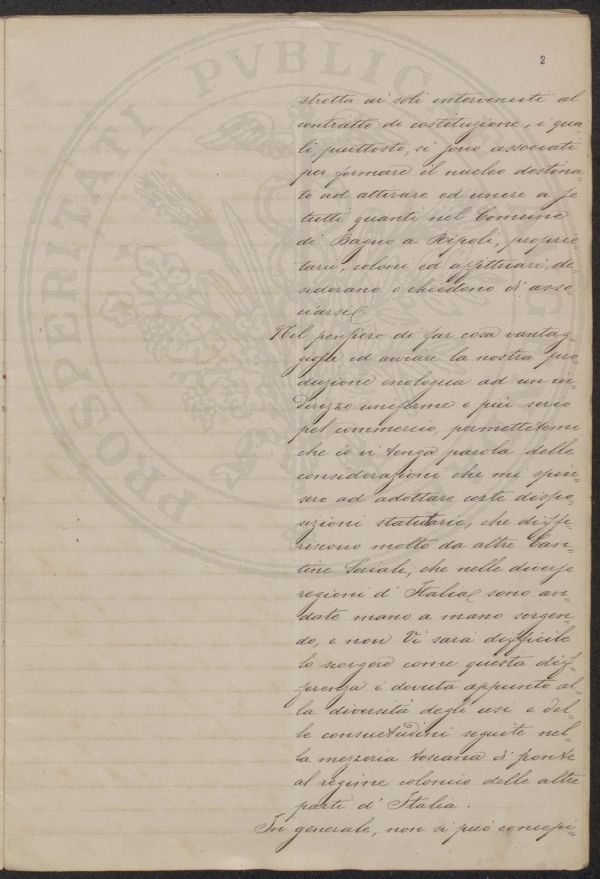 2
stretta ai soli intervenuti al
contratto di costituzione, i qua-
li piuttosto, si sono associati
per formare il nucleo destina-
to ad attirare ed unire a se
tutti quanti nel Comune
di Bagno a Ripoli, proprie-
tarii, coloni ed affittuari, de-
siderano o chiedono di asso-
ciarsi.
Nel pensiero di far cosa vantag-
giosa ed avviare la nostra pro-
duzione enologica ad un in-
dirizzo uniforme e più serio
pel commercio, permettetemi
che io vi tenga parola delle
considerazioni che mi spin-
sero ad adottare certe dispo-
sizioni statutarie, che diffe-
riscono molto da altre Can-
tine Sociali, che nelle diverse
regioni d'Italia sono an-
date mano a mano sorgen-
do, e non Vi sarà difficile
lo scorgere come questa dif-
ferenza è dovuta appunto al-
la diversità degli usi e del-
le consuetudini seguite nel-
la mezzeria toscana di fronte
al regime colonico delle altre
parti d'Italia.
In generale, non si può concepi-
PROSPERITATI PVBLIC